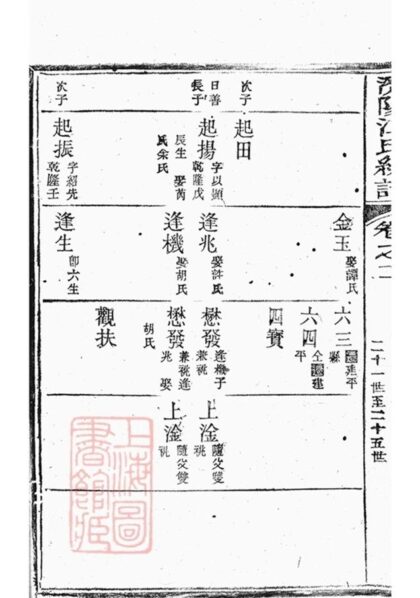 濟陽江氏統譜
卷之二
二十一世至二十五世
次子
起田
日善長子
起揚
字以顯
乾隆戊
辰生 娶芮
氏余氏
次子
起振
字紹先
乾隆壬
金玉
娶譚氏
逢兆
娶許氏
逢機
娶胡氏
逢生
卽六生
六三
遷建平
縣
六四
仝遷建
平
四寶
懋發
逢機子
兼祧
懋發
兼祧逢
兆 娶
胡氏
觀扶
上淦
隨父雙
祧
上淦
隨父雙
祧
上海圖
書館藏